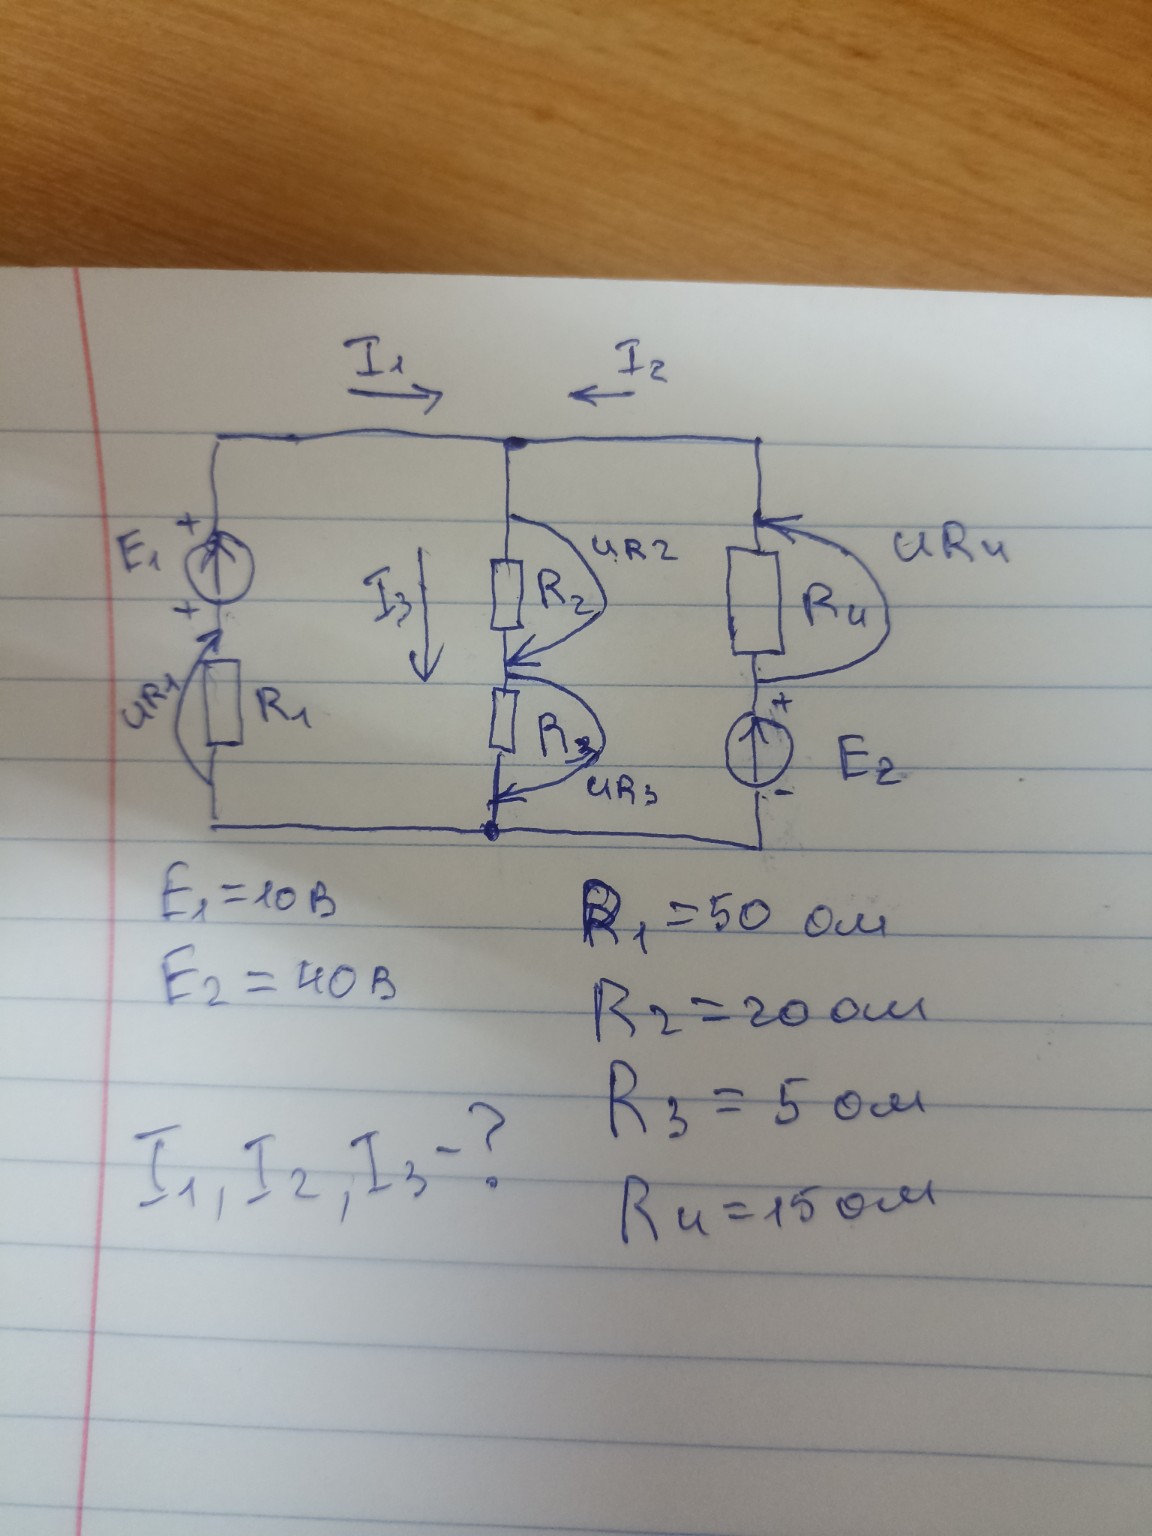 I1 I2
+
E1
+
uR1
R1
I3
R2
uR2
R3
uR3
uR4
R4
+
E2
-
E1 = 10 В
E2 = 40 В
R1 = 50 ом
R2 = 20 ом
R3 = 5 ом
R4 = 15 ом
I1, I2, I3 - ?